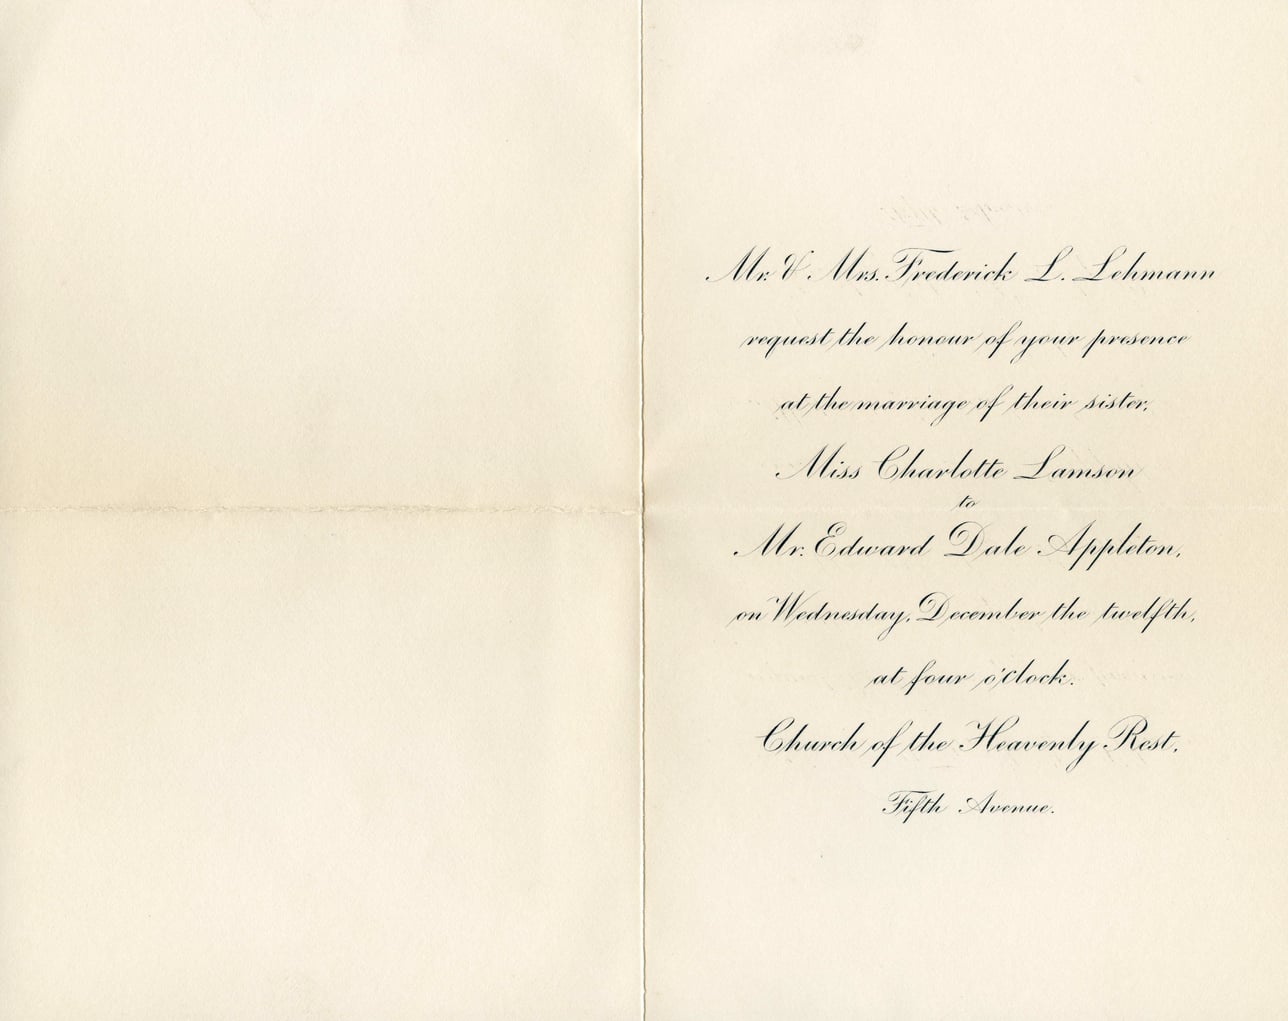 Mr. & Mrs. Frederick L. Lehmann
request the honour of your presence
at the marriage of their sister,
Miss Charlotte Lamson
to
Mr. Edward Dale Appleton,
on Wednesday, December the twelfth,
at four o'clock.
Church of the Heavenly Rest,
Fifth Avenue.